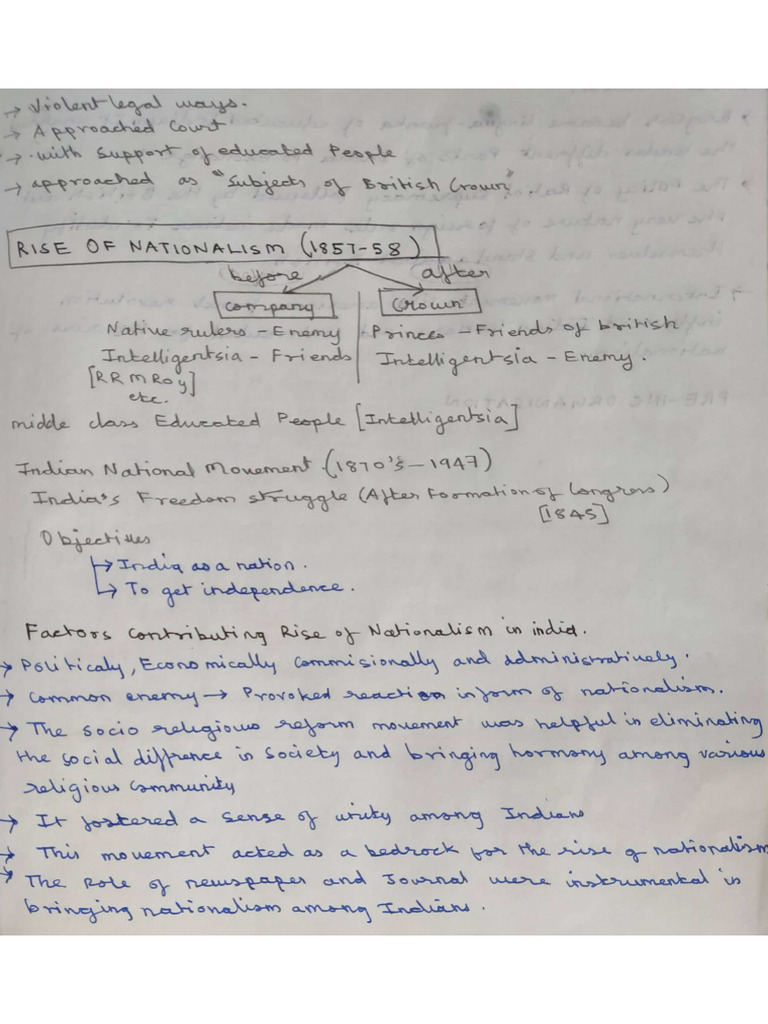 → Violent legal ways.
→ Approached Court
→ with Support of educated People
→ approached as "Subjects of British Crown".
RISE OF NATIONALISM (1857-58)
before after
Company Crown
Native rulers - Enemy Princes - Friends of British
Intelligentsia - Friends Intelligentsia - Enemy.
[RRM Roy]
etc.
middle class Educated People [Intelligentsia]
Indian National Movement (1870's - 1947)
India's Freedom struggle (After Formation of Congress)
[1845]
Objectives
→ India as a nation.
→ To get independence.
Factors Contributing Rise of Nationalism in india.
→ Politicaly, Economically Commisionally and administratively.
→ Common enemy → Provoked reaction in form of nationalism.
→ The socio religious reform movement was helpful in eliminating
the social diffrence in Society and bringing hormony among various
religious Community
→ It fostered a sense of unity among Indians
→ This movement acted as a bedrock for the rise of nationalism
→ The Role of newspaper and Journal were instrumental in
bringing nationalism among Indians.